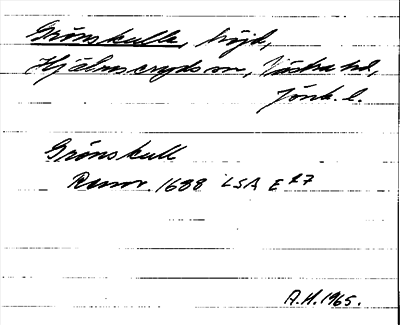 Gröns kulle, höjd,
Hjälmseryds sn, Västra hd,
Jönk. l.
Gröns kull
Rannr. 1688 LSA E 27
A.H. 1965.